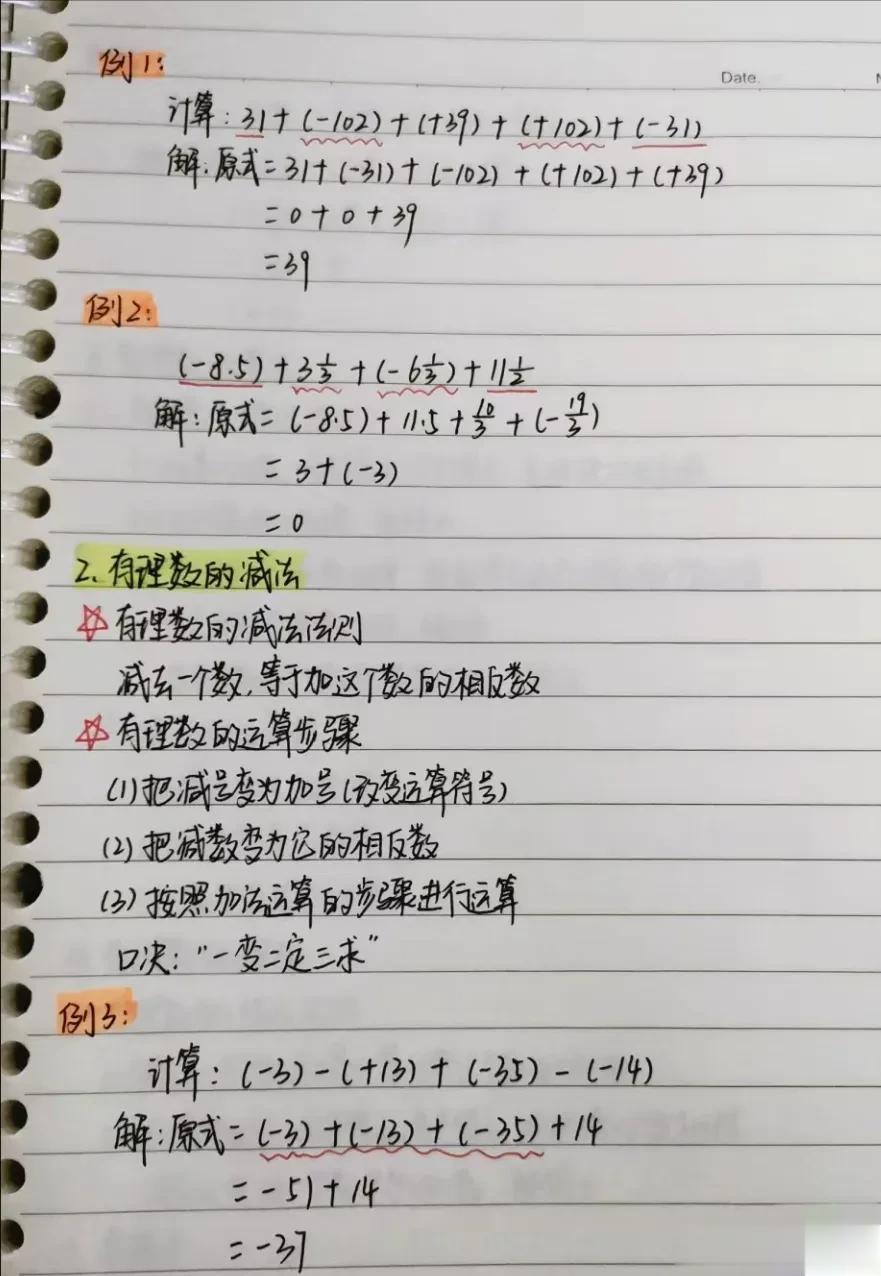 例1:
Date.
计算: 31+(-102)+(+39)+(+102)+(-31)
解:原式=31+(-31)+(-102)+(+102)+(+39)
=0+0+39
=39
例2:
(-8.5)+3⅓+(-6⅓)+11½
解:原式=(-8.5)+11.5+10/3+(-19/3)
=3+(-3)
=0
2、有理数的减法
☆有理数的减法法则
减去一个数,等于加这个数的相反数
☆有理数的运算步骤
(1)把减号变为加号(改变运算符号)
(2)把减数变为它的相反数
(3)按照加法运算的步骤进行运算
口决:“一变二定三求”
例3:
计算:(-3)-(+13)+(-35)-(-14)
解:原式=(-3)+(-13)+(-35)+14
=-51+14
=-37